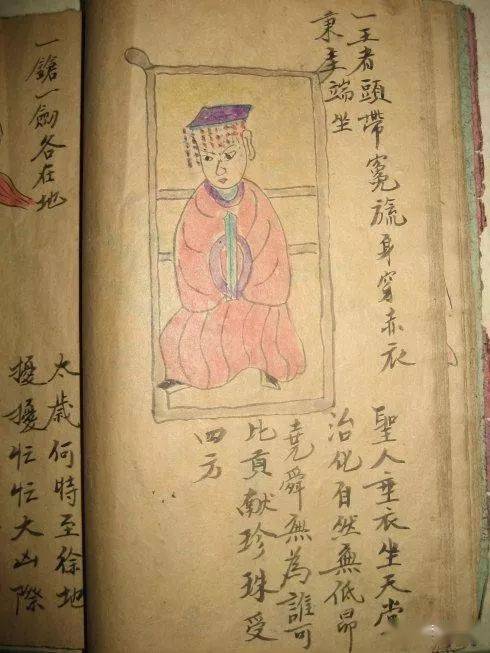 一王者頭帶冕旒身穿赤衣
秉圭端坐
聖人垂衣坐天堂
治化自然無低昂
堯舜無為誰可
比貢献珍珠受
四方
一鎗一劍各在地
太歲何時至徐地
擾擾忙忙大山際